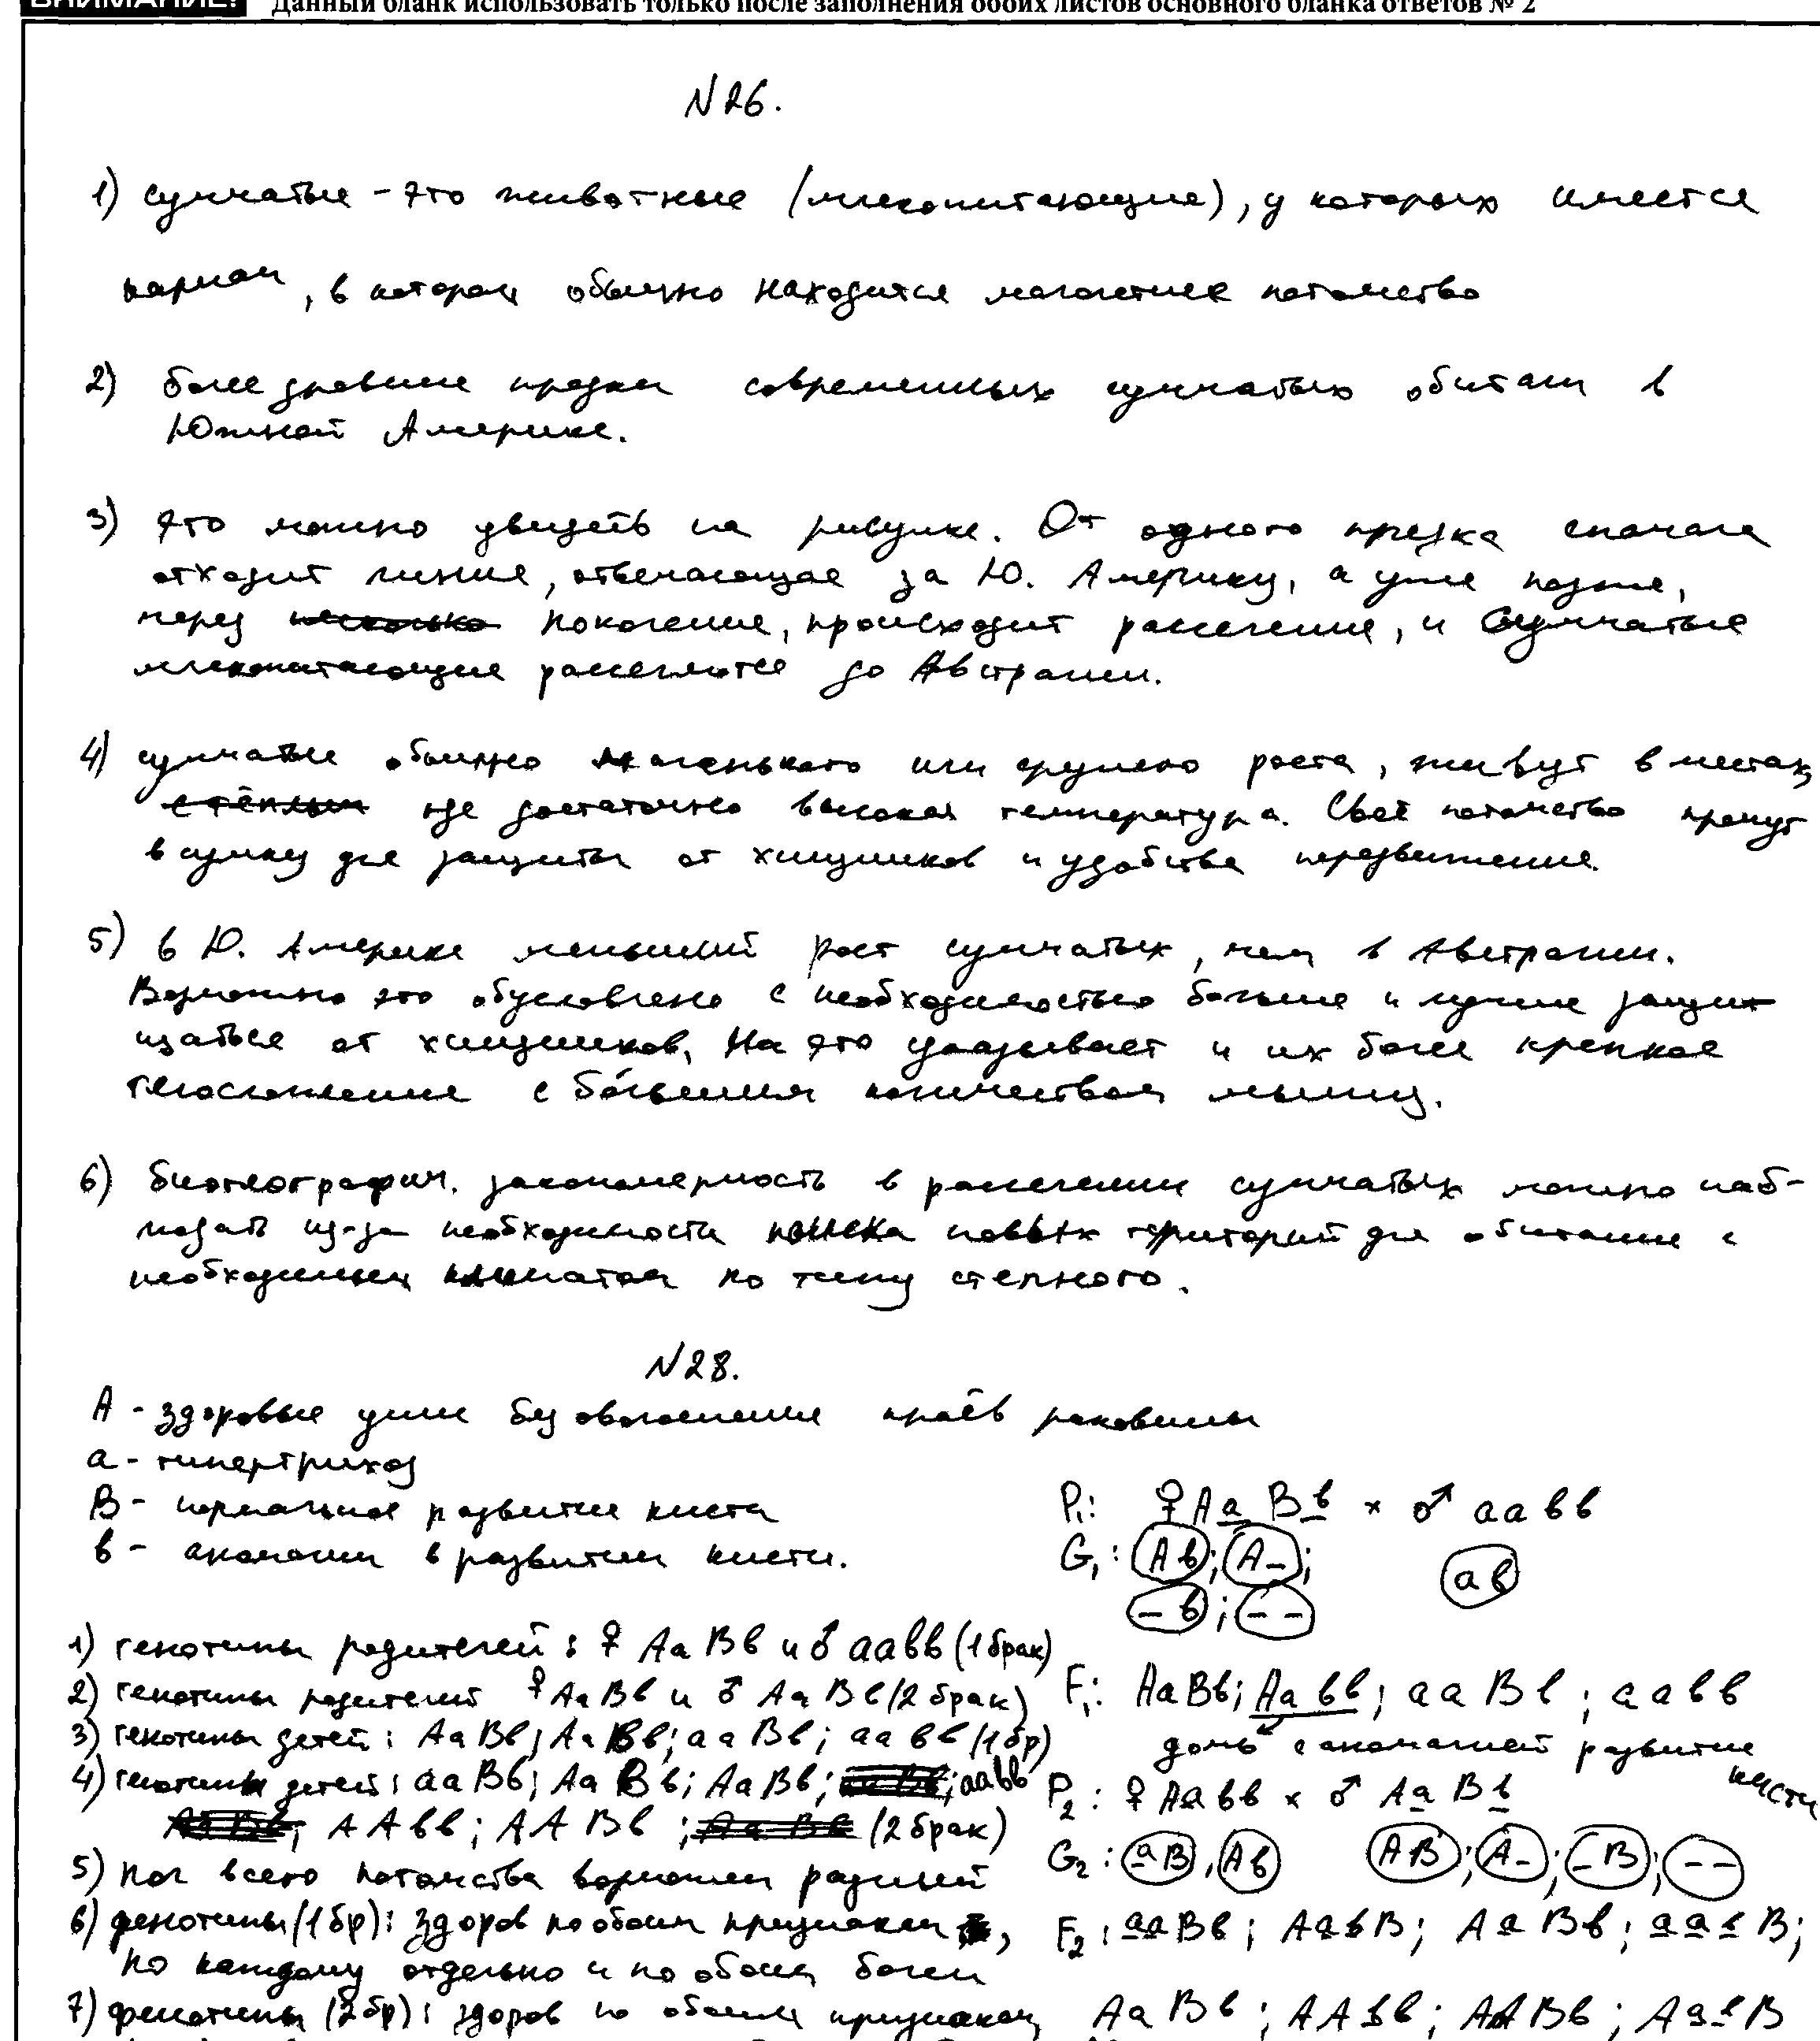 ВНИМАНИЕ! Данный бланк использовать только после заполнения обоих листов основного бланка ответов № 2
N26.
1) сумчатые - это животные (млекопитающие), у которых имеется
карман, в котором обычно находится малолетнее потомство
2) более древние предки современных сумчатых обитали в
Южной Америке.
3) это можно увидеть на рисунке. От одного предка сначала
отходит линия, отвечающая за Ю. Америку, а уже позже,
через несколько поколение, происходит расселение, и сумчатые
млекопитающие расселяются до Австралии.
4) сумчатые обычно маленького или среднего роста, живут в местах,
с тёплым где достаточно высокая температура. Своё потомство прячут
в сумку для защиты от хищников и удобства передвижения.
5) в Ю. Америке меньший рост сумчатых, чем в Австралии.
Возможно это обусловлено с необходимостью больше и лучше защи
щаться от хищников, На это указывает и их более крепкое
телосложение с бо́льшим количеством мышц.
6) биогеографич. закономерность в расселении сумчатых можно наб-
людать из-за необходимости поиска новых территорий для обитания с
необходимым климатом по типу степного.
N28.
A - здоровые уши без оволосения краёв раковины
a - гипертрихоз
B - нормальное развитие кисти
b - аномалии в развитии кисти.
P₁: ♀ Aa Bb × ♂ aa bb
G₁: Ab; A_;
ab
_ b; _ _
1) генотипы родителей: ♀ Aa Bb и ♂ aabb (1 брак)
2) генотипы родителей ♀ Aa Bb и ♂ Aa Bb (2 брак)
F₁: AaBb; Aa bb; aa Bb; aabb
3) генотипы детей: Aa Bb; Aa Bb; aa Bb; aa bb (1 бр)
дочь с аномалией развития кисти
4) генотипы детей: aa Bb; Aa Bb; Aa Bb; aabb
P₂: ♀ Aa bb × ♂ Aa Bb
AA bb; AA Bb; (2 брак)
G₂: aB, Ab AB; A_; _B; _ _
5) пол всего потомства возможен разный
6) фенотипы (1 бр): здоров по обоим признакам,
F₂: aaBb; AabB; Aa Bb; aabB;
по каждому отдельно и по обоим болен
7) фенотипы (2 бр): здоров по обоим признакам
Aa Bb; AAbb; AABb; AabB